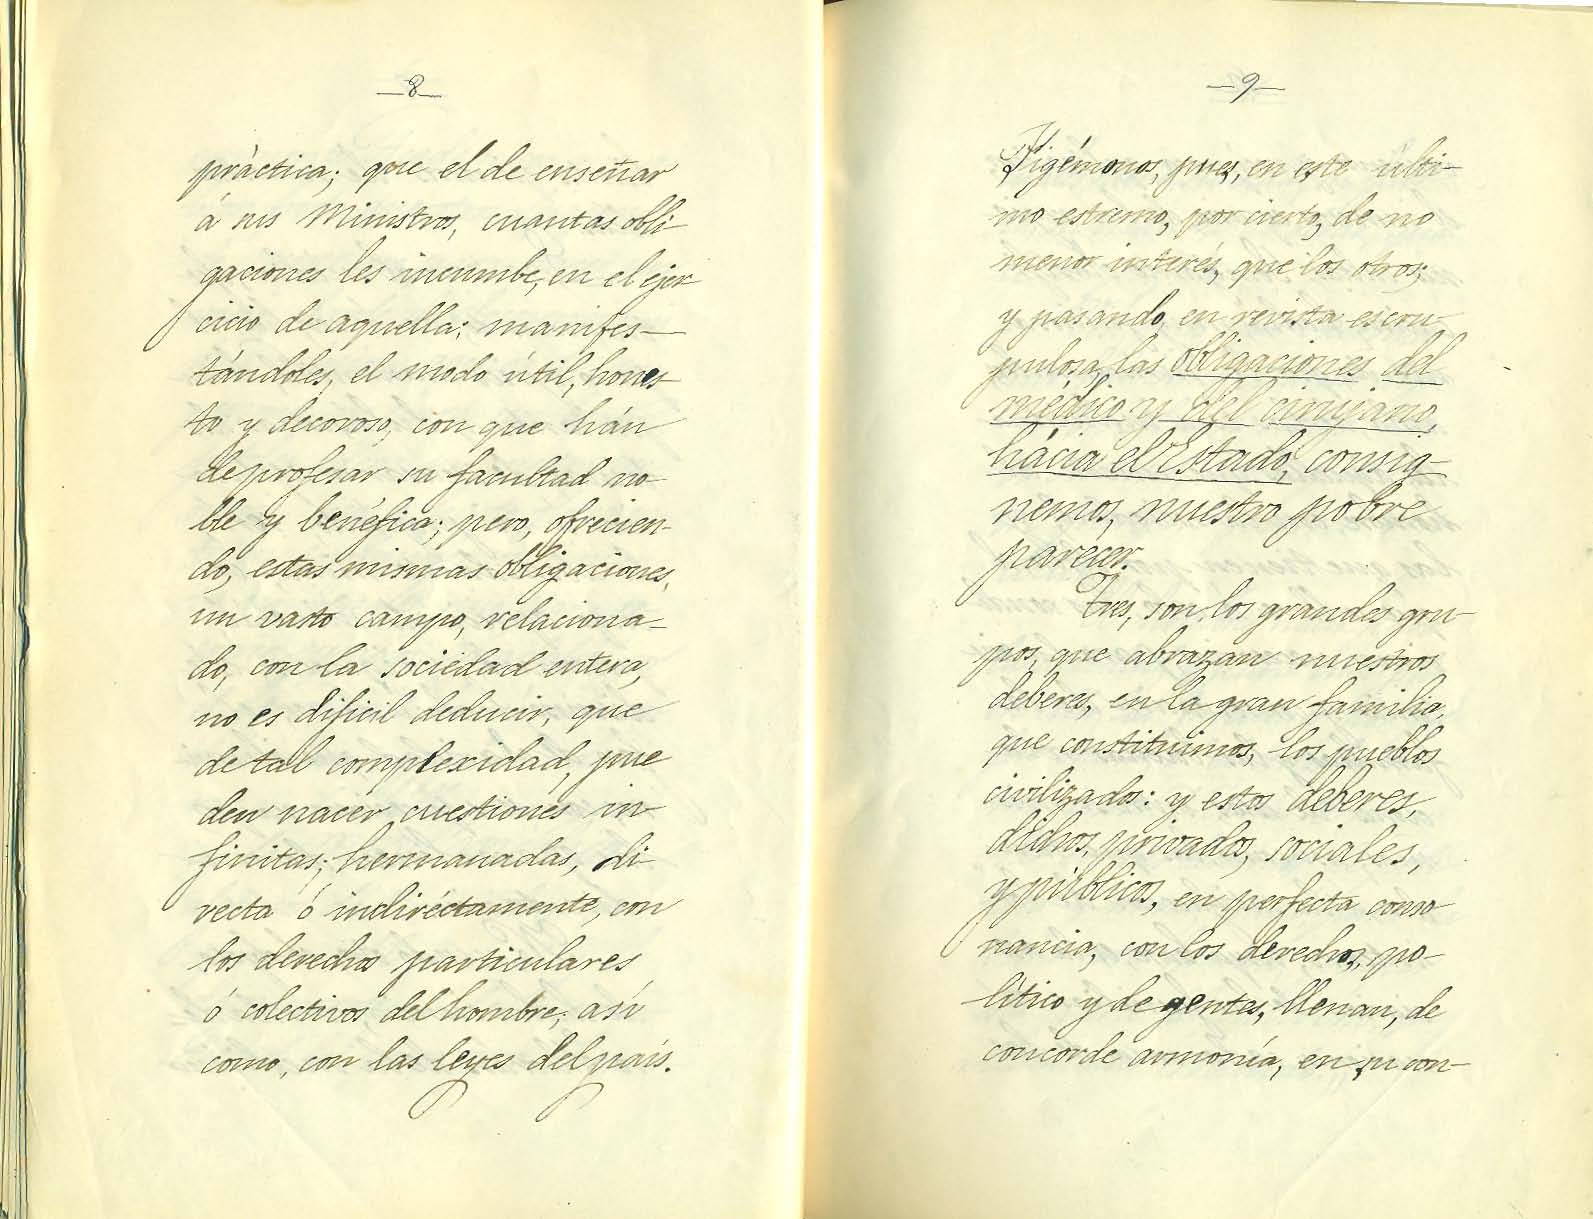 —8—
práctica; que el de enseñar
á sus Ministros, cuantas obli-
gaciones les incumbe, en el ejer-
cicio de aquella: manifes—
tándoles, el modo útil, hones-
to y decoroso, con que hán
de profesar su facultad no-
ble y benéfica; pero, ofrecien-
do, estas mismas obligaciones,
un vasto campo, relaciona-
do, con la sociedad entera,
no es dificil deducir, que
de tal complexidad, pue
den nacer cuestiones in-
finitas; hermanadas, di
recta ó indiréctamente, con
los derechos particulares
ó colectivos del hombre; así
como, con las leyes del país.
—9—
Figémonos, pues, en este últi-
mo estremo, por cierto, de no
menor interés, que los otros;
y pasando, en revista escru-
pulosa, las obligaciones del
médico y del cirujano,
hácia el Estado, consig-
nemos, nuestro pobre
parecer.
Tres, son los grandes gru-
pos, que abrazan nuestros
deberes, en la gran familia,
que constituimos, los pueblos
civilizados: y estos deberes,
dichos, privados, sociales,
y públicos, en perfecta conso
nancia, con los derechos, po-
lítico y de gentes, llenan, de
concorde armonía, en su con-